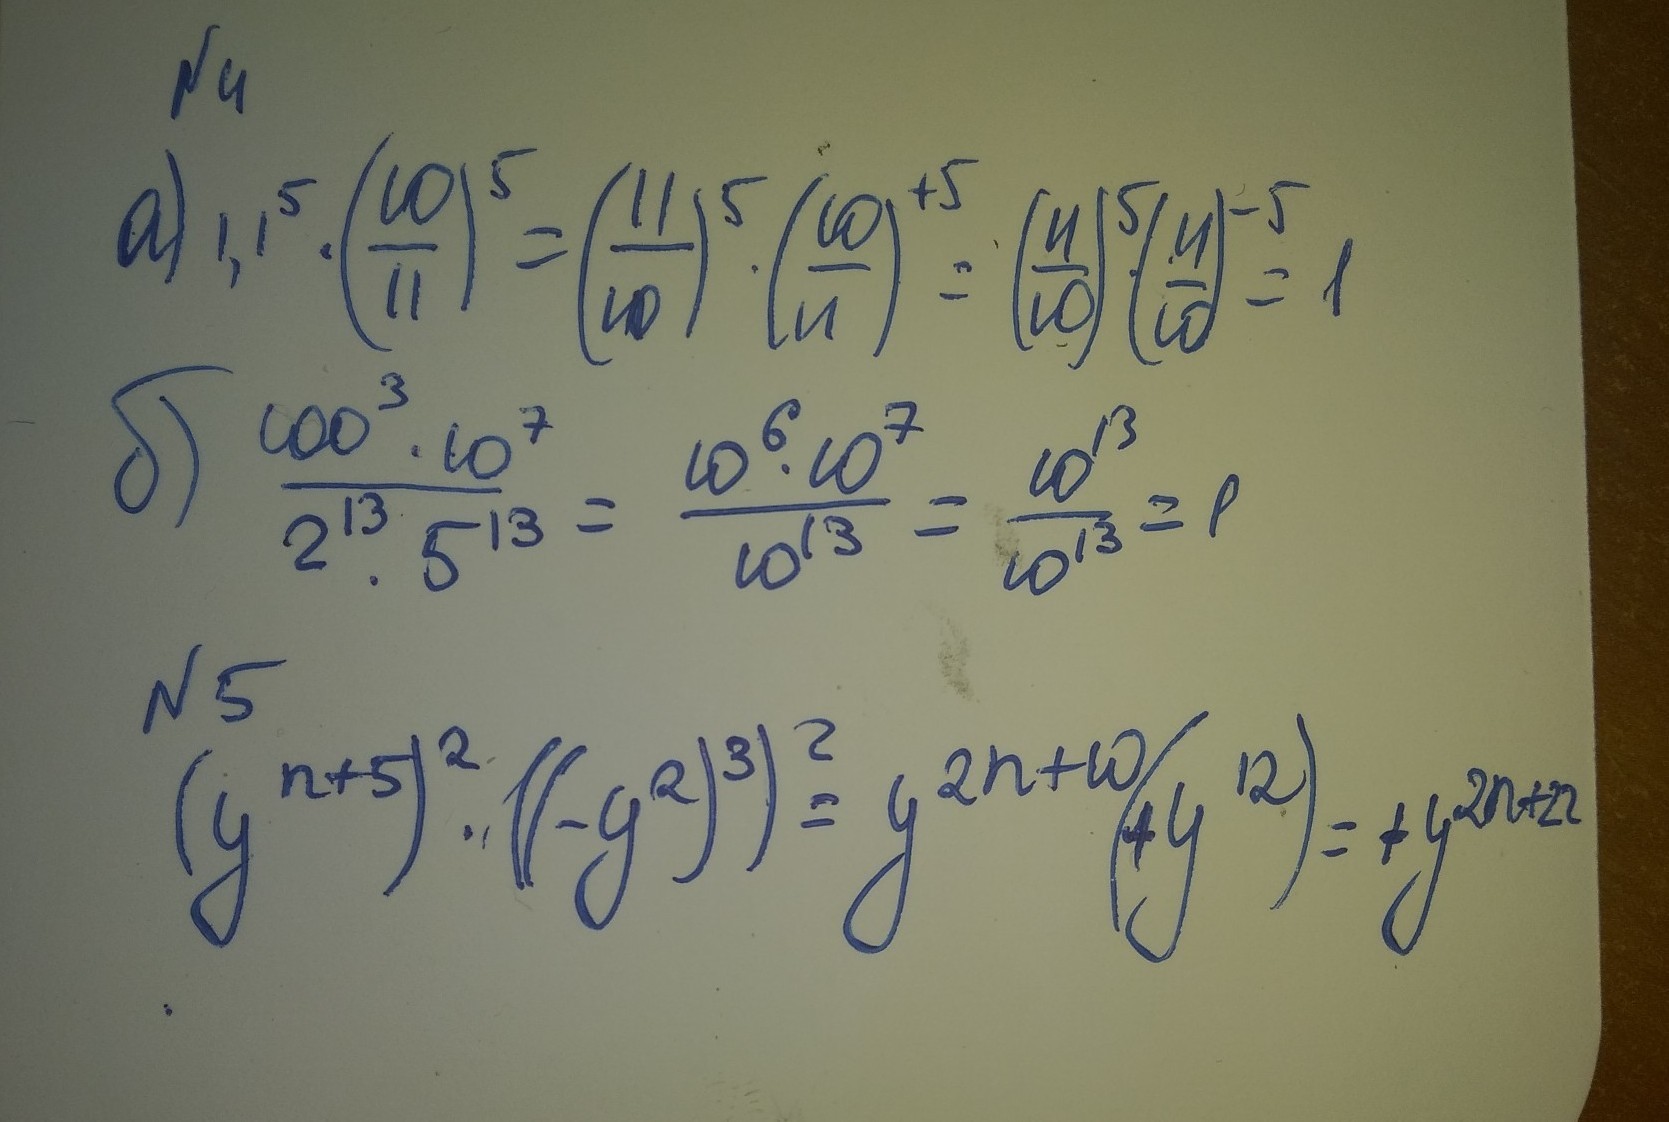 N4
а) 1,1^5 · (10/11)^5 = (11/10)^5 · (10/11)^+5 = (11/10)^5 · (11/10)^-5 = 1
б) 100^3 · 10^7 / 2^13 · 5^13 = 10^6 · 10^7 / 10^13 = 10^13 / 10^13 = 1
N5
(y^n+5)^2 · ((-y^2)^3)^2 = y^2n+10 (+y^12) = +y^2n+22